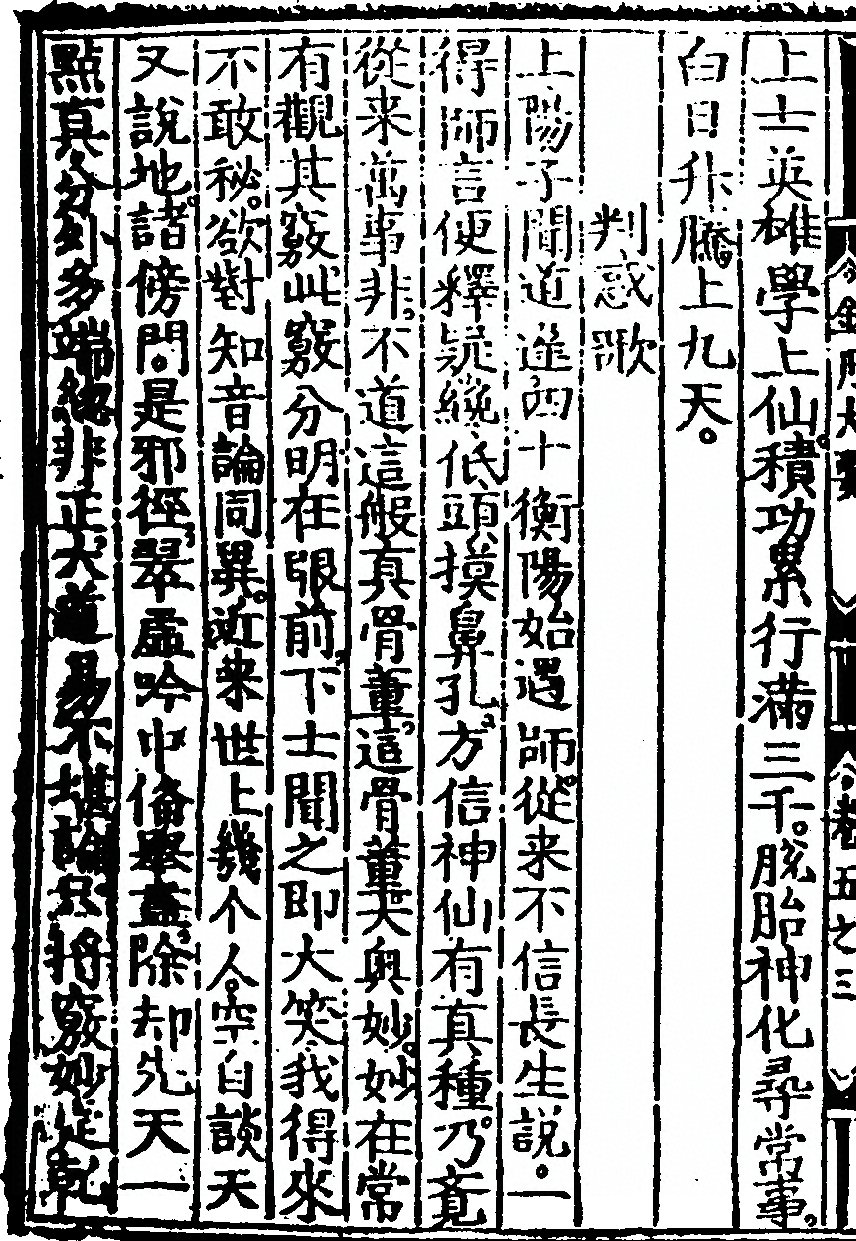 金丹大要 卷五之三
上士英雄學上仙。積功累行滿三千。脫胎神化尋常事。
白日升騰上九天。
判惑歌
上陽子聞道逢四十衡陽始遇師。從来不信長生說。一
得師言便釋疑纔低頭摸鼻孔方信神仙有真種乃竟
從来萬事非不道這般真骨董這骨董大奥妙。妙在常
有觀其竅此竅分明在眼前下士聞之即大笑我得來
不敢秘。欲對知音論同異。近来世上幾个人。空自談天
又說地。諸傍門。是邪徑翠虛吟中俻舉盡除却先天一
點真分外多端總非正大道易不堪論只將竅妙定乾